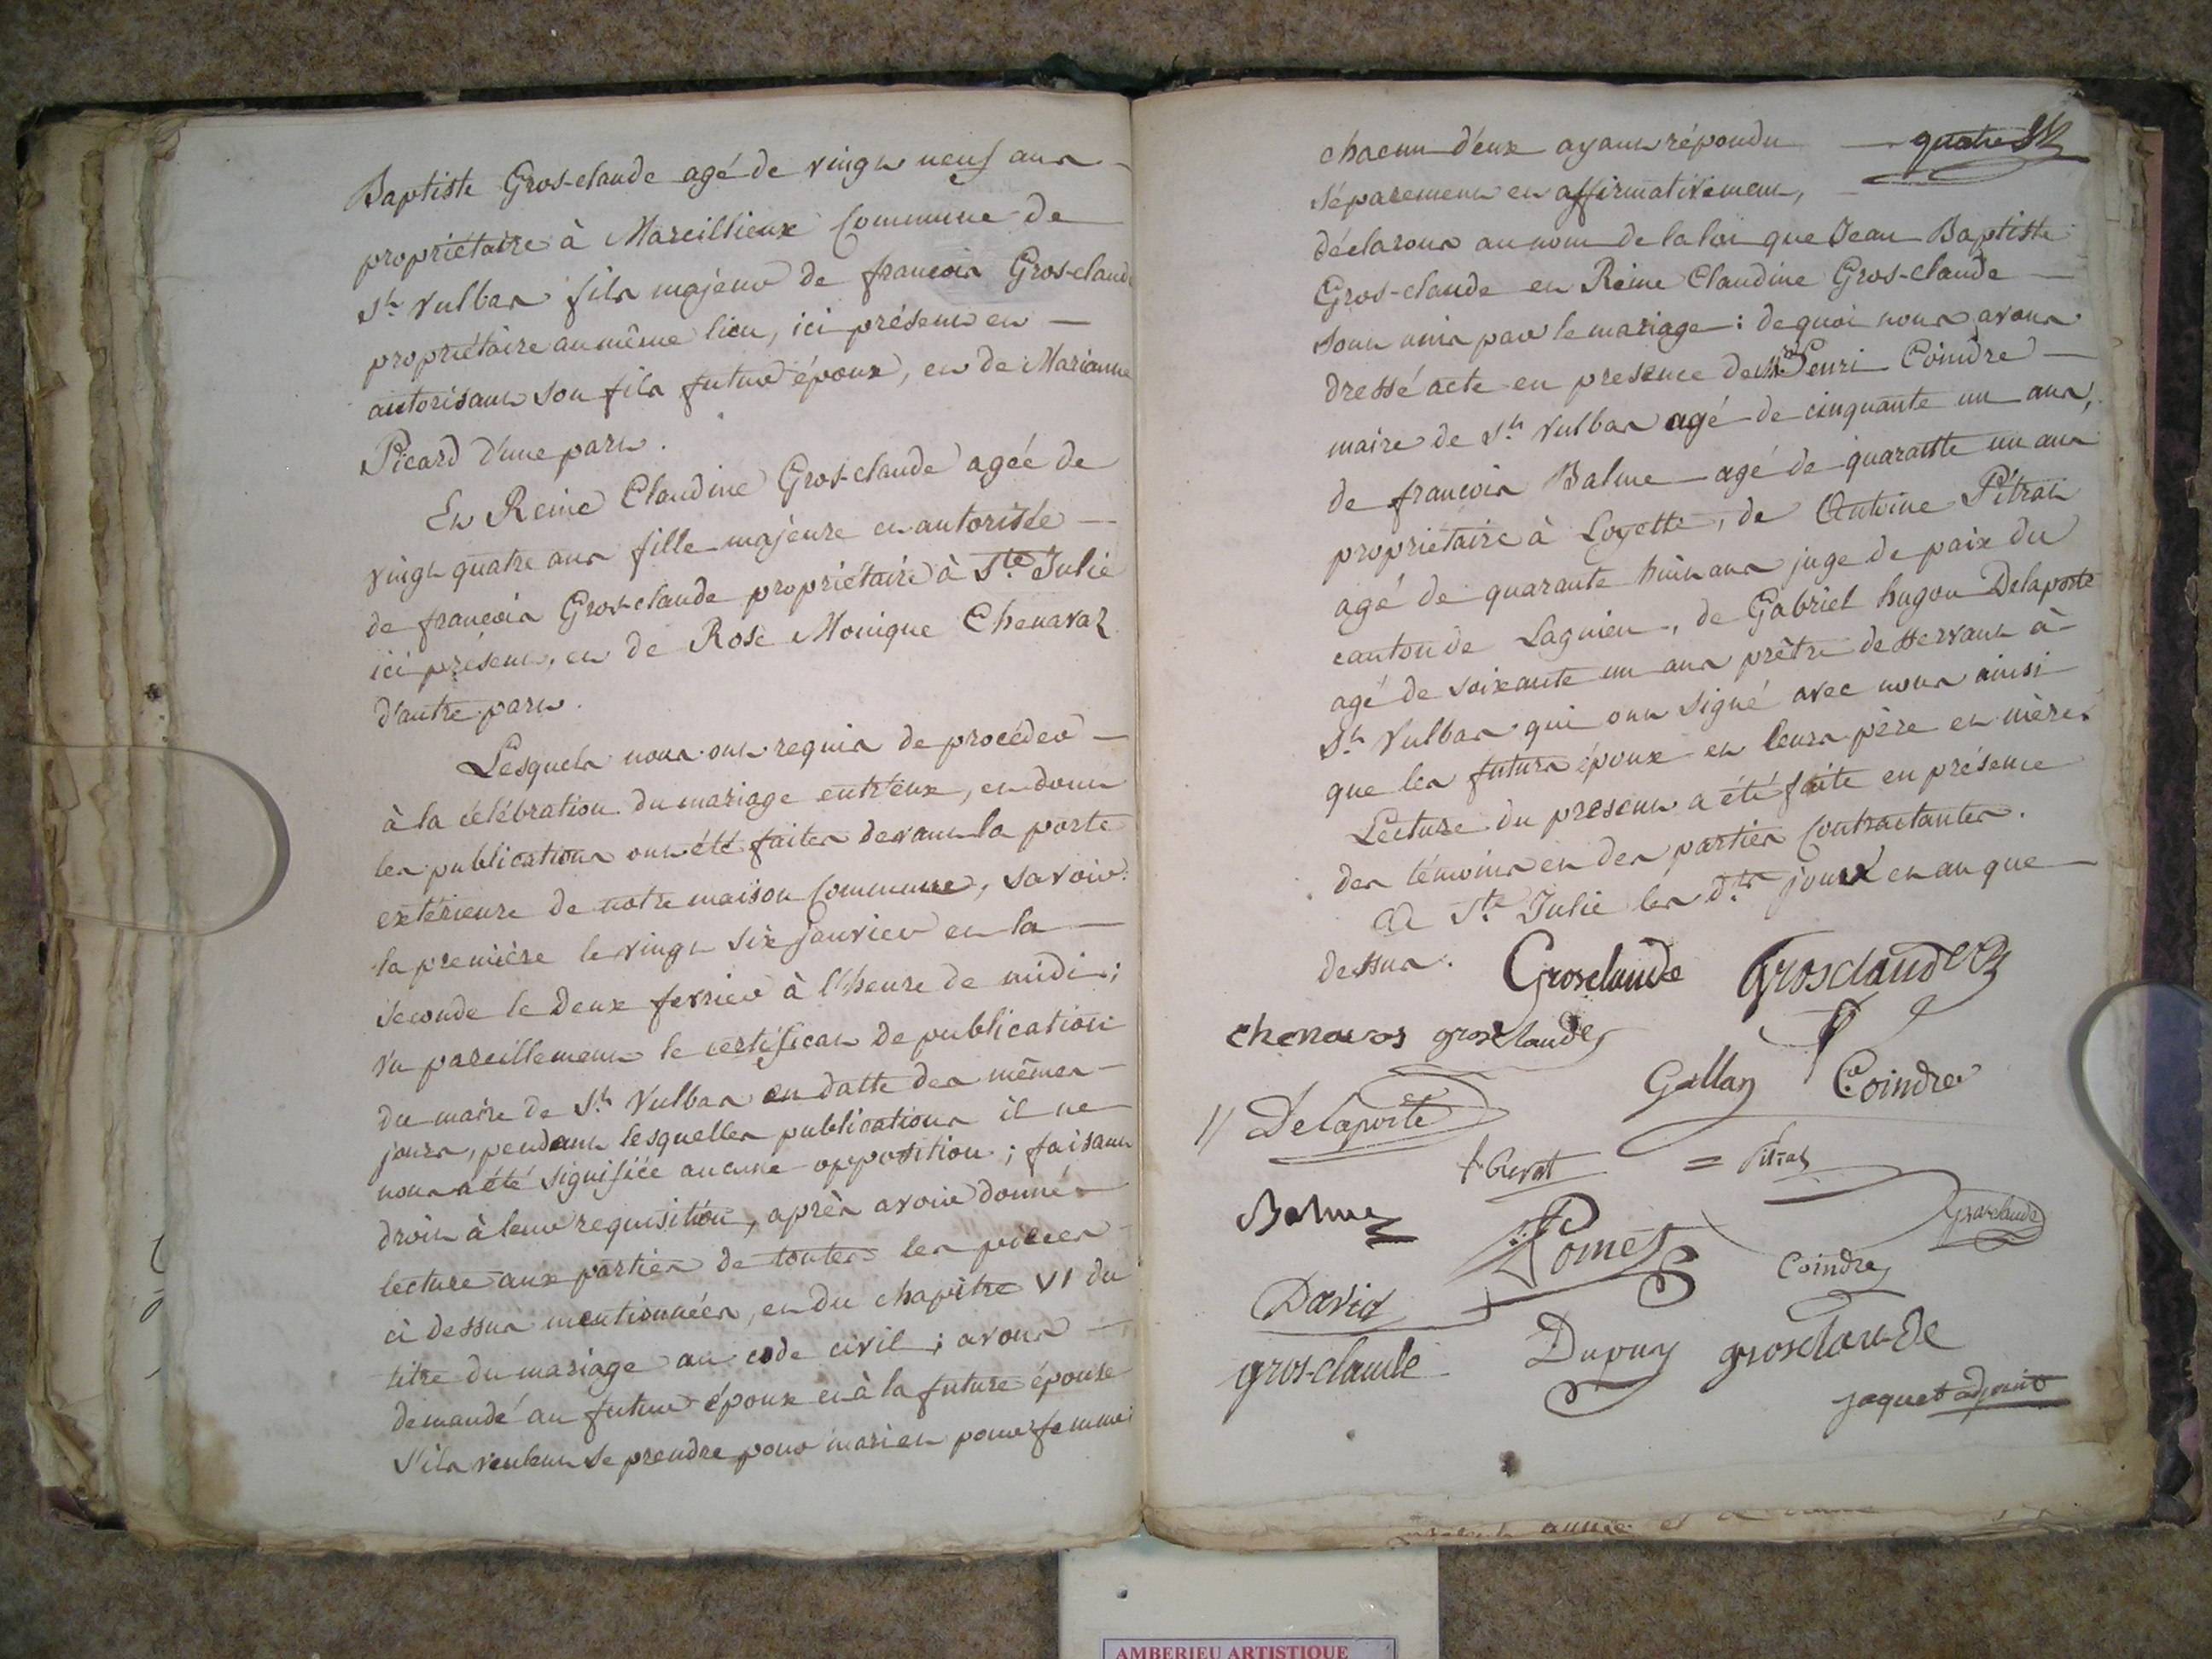 Baptiste Gros-claude agé de vingt neuf ans
propriétaire à Marcillieux Commune de
St. Vulbas fils majeur de francois Gros-claude
propriétaire au même lieu, ici présent et
autorisant son fils futur époux, et de Marianne
Picard d'une part.
Et Reine Claudine Gros-claude agée de
vingt quatre ans fille majeure et autorisée
de francois Gros-claude propriétaire à Ste. Julie
ici présent, et de Rose Monique Chenavaz
d'autre part.
Lesquels nous ont requis de procéder
à la célébration du mariage entr'eux, et dont
les publications ont été faites devant la porte
extérieure de notre maison Commune, Savoir:
la première le vingt six janvier et la
seconde le deux fevrier à l'heure de midi;
vu pareillement le certificat de publication
du maire de St. Vulbas en datte des mêmes
jours, pendant lesquelles publications il ne
nous a été signifiée aucune opposition; faisant
droit à leur requisition, après avoir donné
lecture aux parties de toutes les pièces
ci dessus mentionnées, et du chapitre VI du
titre du mariage au code civil; avons
demandé au futur époux et à la future épouse
s'ils veulent se prendre pour mari et pour femme:
quatre
chacun d'eux ayant répondu
séparement et affirmativement,
déclarons au nom de la loi que Jean Baptiste
Gros-claude et Reine Claudine Gros-claude
sont unis par le mariage: de quoi nous avons
dressé acte en presence de Henri Coindre
maire de St. Vulbas agé de cinquante un ans,
de francois Balme agé de quarante un ans
propriétaire à Loyette, de Antoine Pitrat
agé de quarante huit ans juge de paix du
canton de Lagnieu, de Gabriel hugon Delaporte
agé de soixante un ans prêtre desservant à
St. Vulbas qui ont signé avec nous ainsi
que les futurs époux et leurs père et mères
Lecture du present a été faite en présence
des témoins et des parties Contractantes.
A Ste. Julie les dts. jour et an que
dessus. Grosclaude Grosclaude
chenavas grosclaude
Gallay Coindre
Delaporte
Pitrat
Balme
Pomet
Grosclaude
David
Coindre
gros-claude Dupuy grosclaude
jaquet adjoint
AMBERIEU ARTISTIQUE